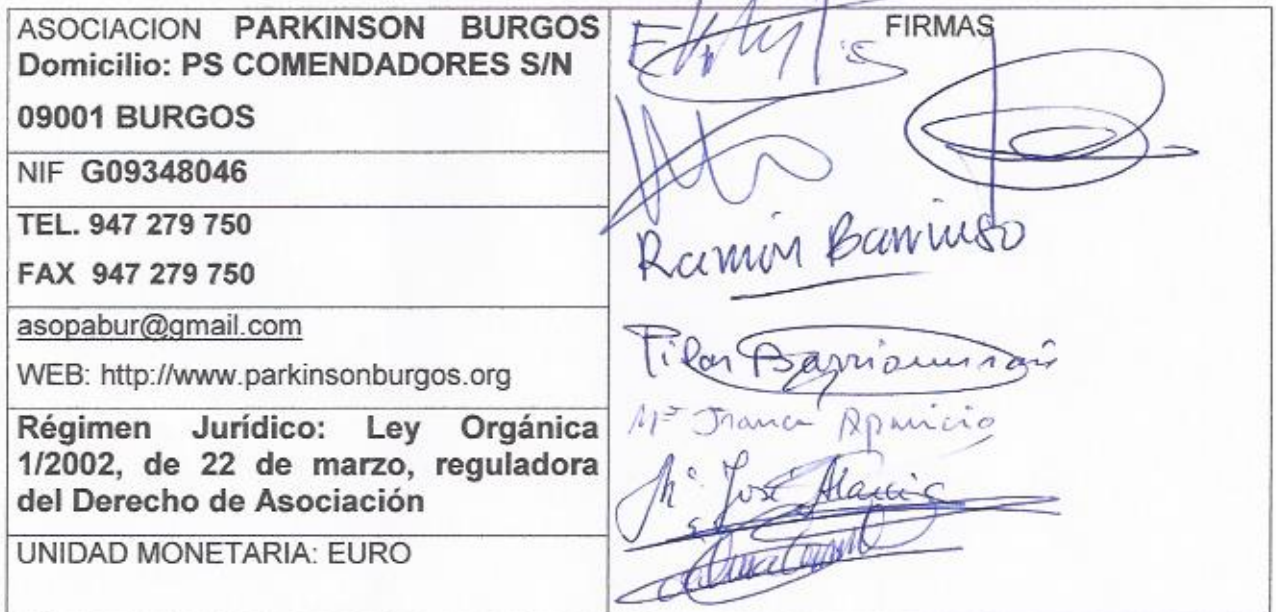 ASOCIACION PARKINSON BURGOS
Domicilio: PS COMENDADORES S/N
09001 BURGOS
NIF G09348046
TEL. 947 279 750
FAX 947 279 750
asopabur@gmail.com
WEB: http://www.parkinsonburgos.org
Régimen Jurídico: Ley Orgánica
1/2002, de 22 de marzo, reguladora
del Derecho de Asociación
UNIDAD MONETARIA: EURO
FIRMAS
Ramón Barriuso
Pilar
Mª Aparicio
Mª José